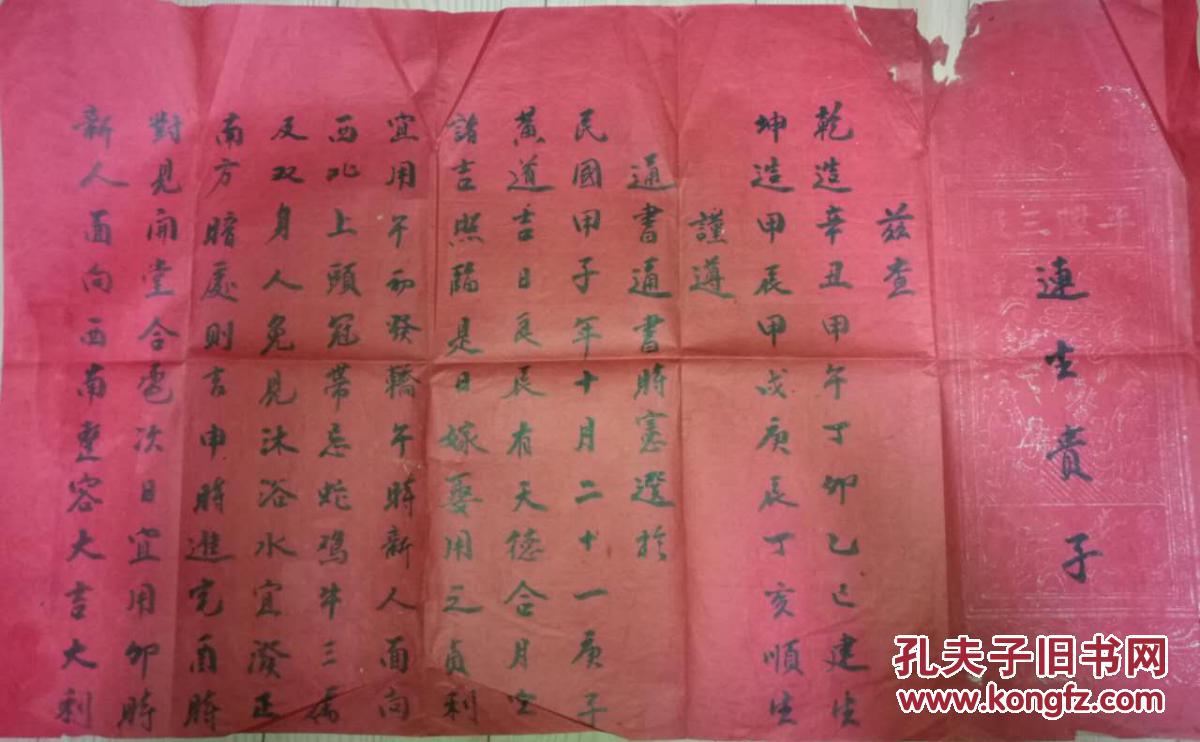 連生貴子
茲查
乾造辛丑甲午丁卯乙巳建生
坤造甲辰甲戌庚辰丁亥順生
謹遵
通書通書時憲選於
民國甲子年十月二十一庚子
黃道吉日良辰有天德合月空
諸吉照臨是日嫁娶用之貞利
宜用午初發轎午時新人面向
西北上頭冠帶忌蛇鸡牛三属
及双身人免見沐浴水宜潑正
南方暗處则吉申時進宅酉時
對見開堂合卺次日宜用卯時
新人面向西南整容大吉大利
三世平
孔夫子旧书网
www.kongfz.com